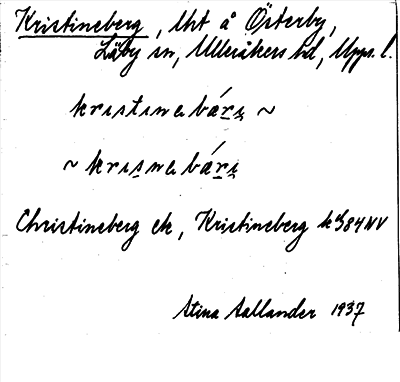 Kristineberg, lht å Österby,
Läby sn, Ulleråkers hd, Upps. l.
kristinebári ~
~ krisnebári
Christineberg ek, Kristineberg k 384 NV
Stina Aallander 1937